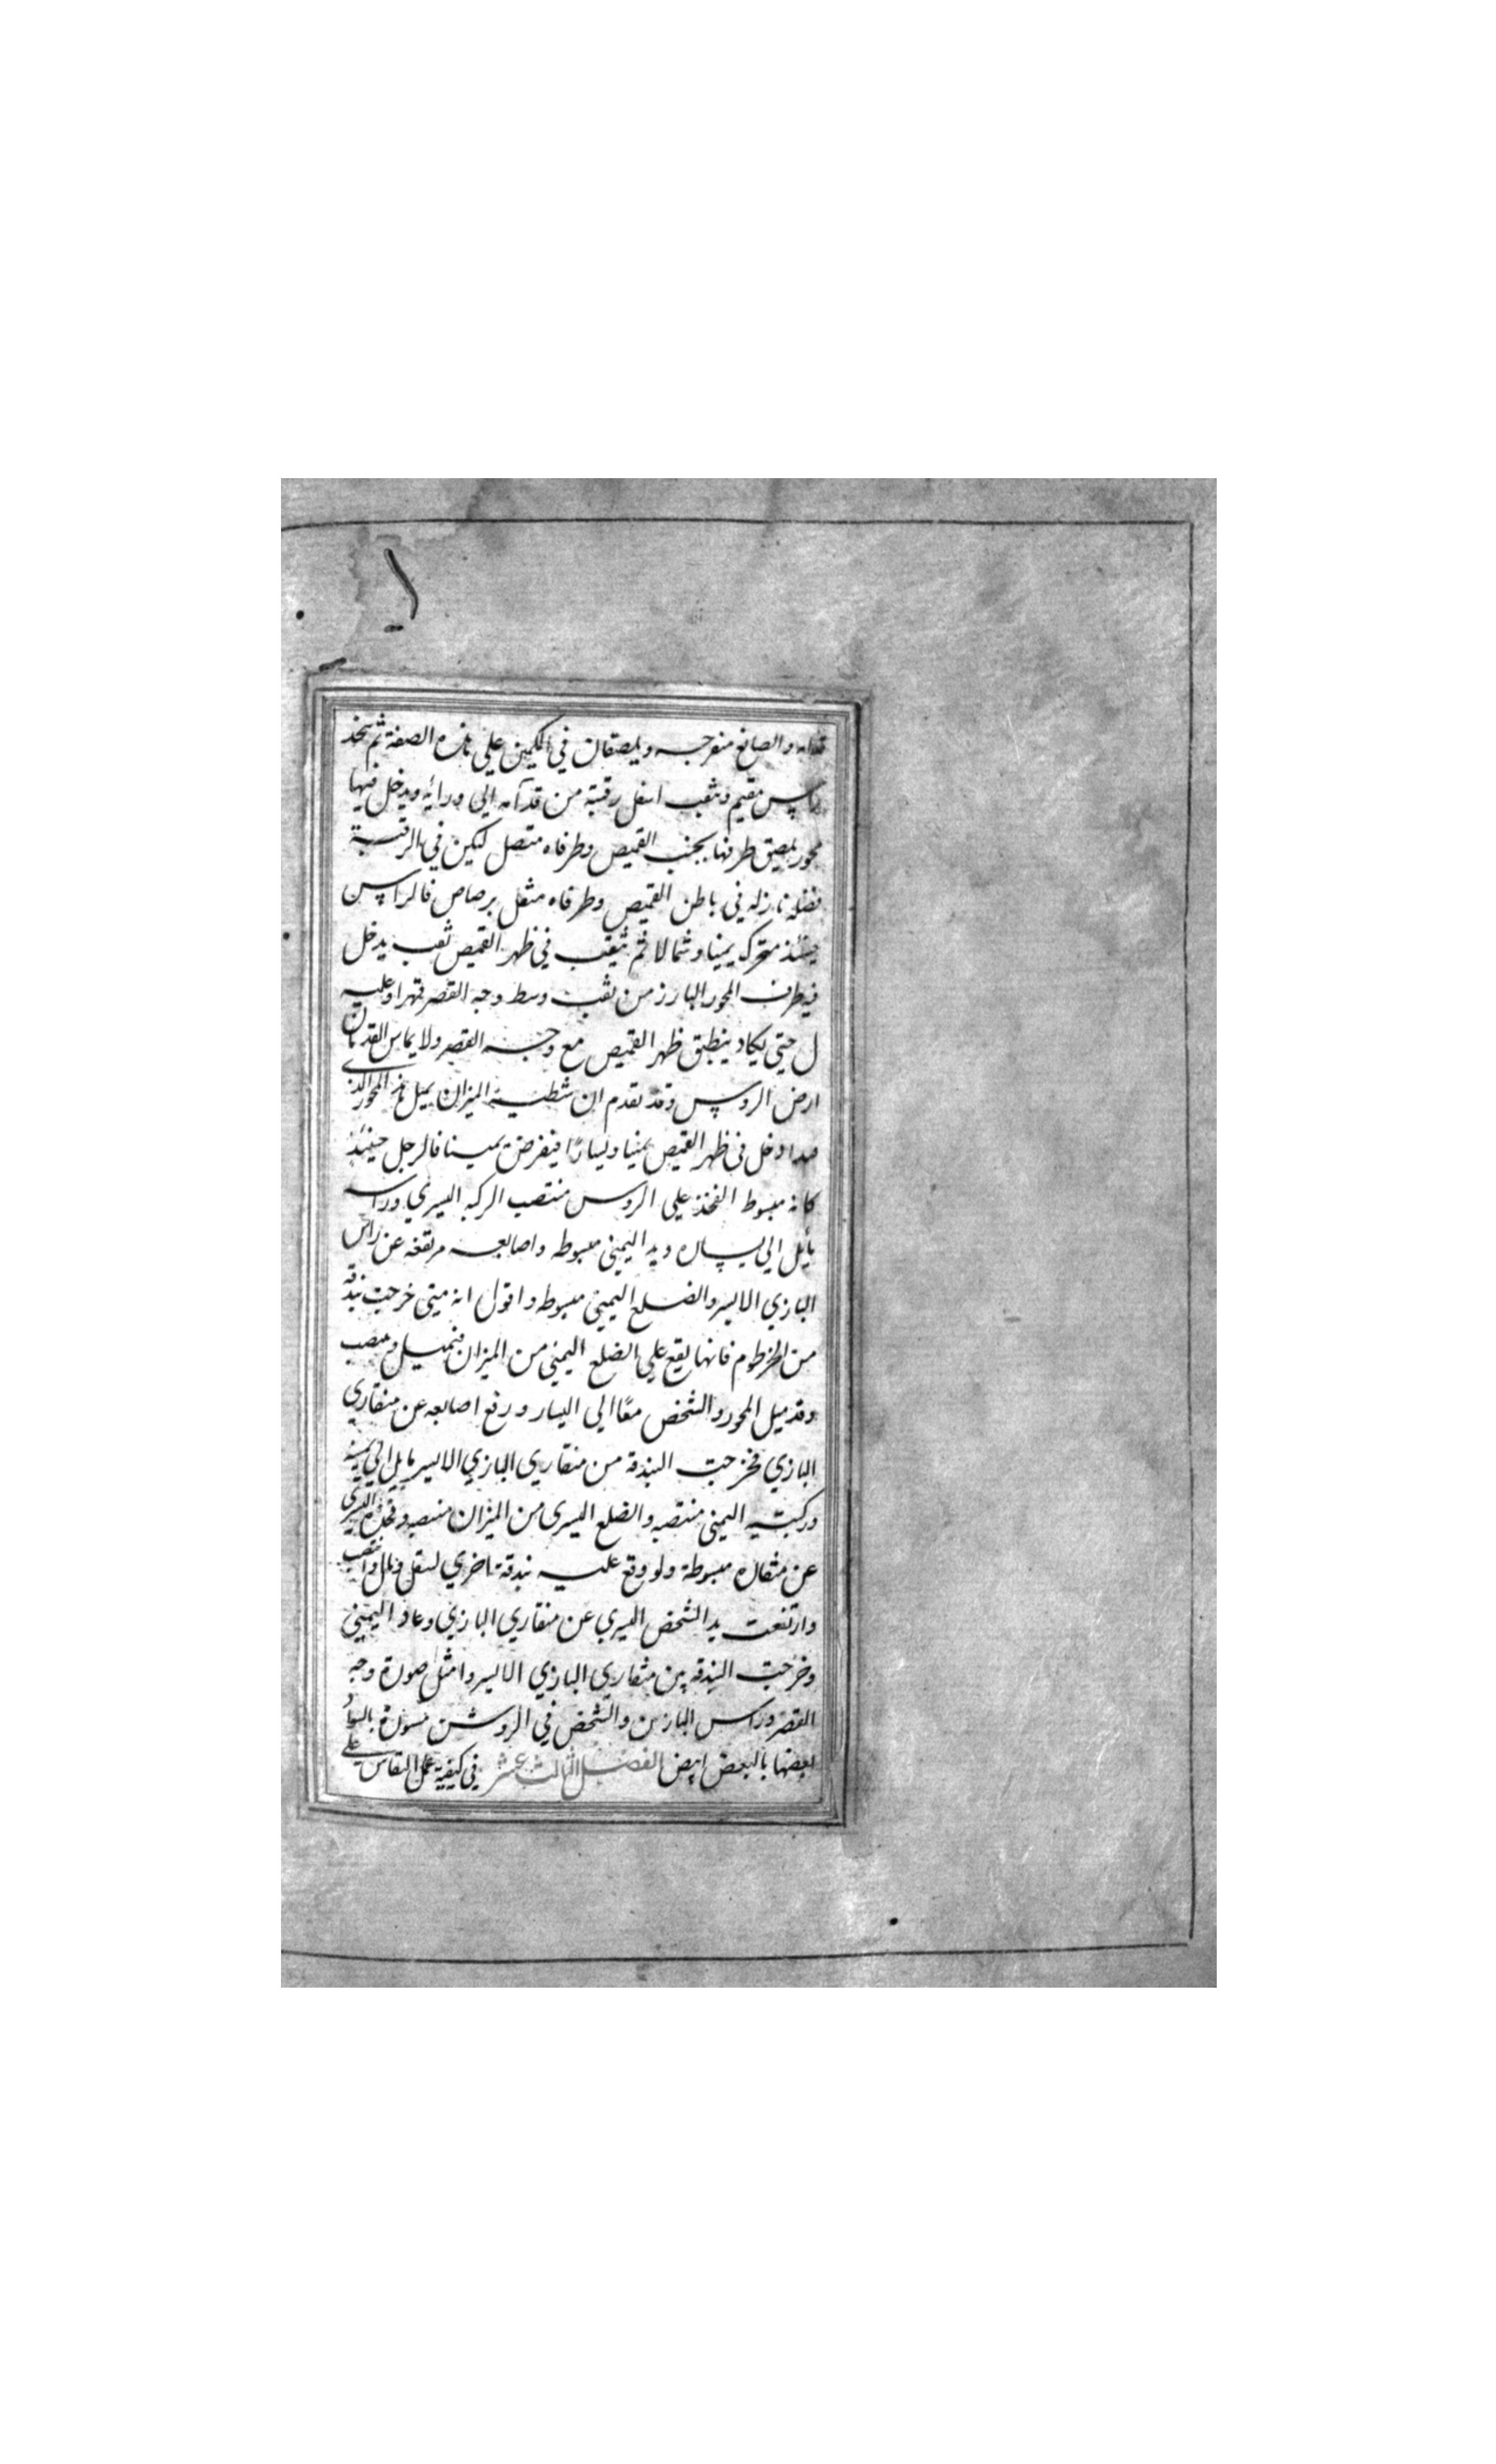 قدامه والصانع منفرجه ويلصقان في الكمين علي هذه الصفة ثم يتخذ
راس مقيم وثقب اسفل رقبته من قدامه الي ورائه ويدخل فيها
محور يلصق طرفها بجنب القميص وطرفاه متصل لكين في الرقبة
فضله نازله في باطن القميص وطرفاه مثقل برصاص فالراس
حينئذ متحرك يمينا وشمالا ثم يثقب في ظهر القميص ثقب يدخل
فيه طرف المحور البارز من ثقب وسط وجه القصر قهرا وعليه
ل حتي يكاد ينطبق ظهر القميص مع وجه القصر ولا يماس القدمان
ارض الروس وقد تقدم ان شطية الميزان يميل هذا المحور الذي
ادخل في ظهر القميص يمينا ويسارا فيفرض يمينا فالرجل حينئذ
كانه مبسوط الفخذ علي الروس منتصب الركبه اليسري وراسه
مايل الي يساره ويده اليمني مبسوطه واصابعه مرتفعه عن راس
البازي الايسر والضلع اليمني مبسوطه واقول انه متي خرجت بندقه
من الخرطوم فانها يقع علي الضلع اليمني من الميزان فتميل وينصب
وقد ميل المحور والشخص معًا الي اليسار ورفع اصابعه عن منقاري
البازي فخرجت البندقة من منقاري البازي الايسر مايل الي يمينه
وركبته اليمني منتصبه والضلع اليسري من الميزان منتصبه وفخذه اليسري
عن مثاله مبسوطة ولو وقع عليه بندقة اخري لثقل ومال وانتصب
وارتفعت يد الشخص اليسري عن منقاري البازي وعاد اليمني
وخرجت البندقه بين منقاري البازي الايسر وامثل صورة وجه
القصر وراس البازين والشخص في الروشن مستورة بالسواد
بعضها بالبعض ابيض الفصل الثالث عشر في كيفية عمل النقاس علي